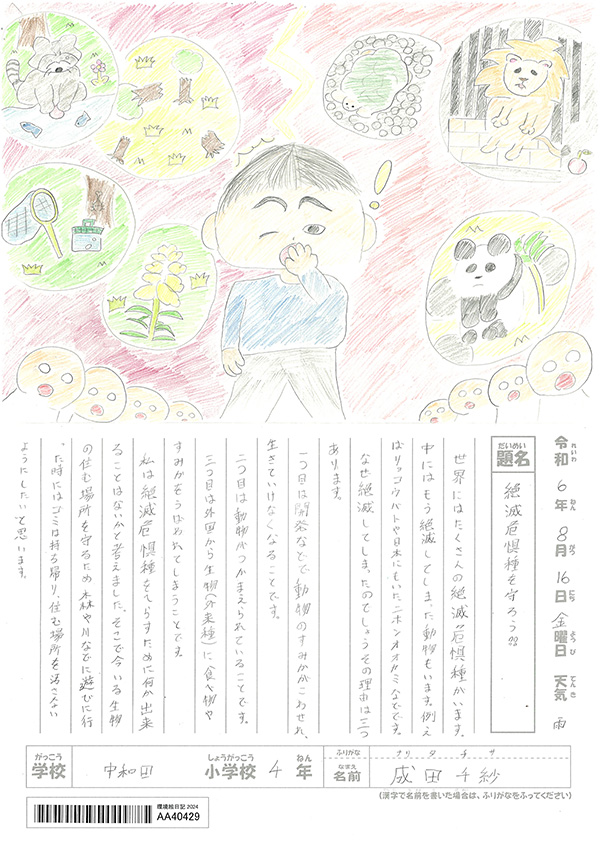 令和6年8月16日金曜日 天気 雨
れいわ ねん がつ にち ようび てんき
だいめい
題名 絶滅危惧種を守ろう??
世界にはたくさんの絶滅危惧種がいます。
中にはもう絶滅してしまった動物もいます。例え
ばリョコウバトや日本にもいたニホンオオカミなどです。
なぜ絶滅してしまったのでしょうその理由は三つ
あります。
一つ目は開発などで動物のすみかがこわされ、
生きていけなくなることです。
二つ目は動物がつかまえられていることです。
三つ目は外国から生物(外来種)に食べ物や
すみかをうばわれてしまうことです。
私は絶滅危惧種をへらすために何か出来
ることはないかと考えました。そこで今いる生物
の住む場所を守るため森や川などに遊びに行
った時にはゴミは持ち帰り、住む場所を汚さない
ようにしたいと思います。
がっこう しょうがっこう ねん ふりがな ナリタ チサ
学校 中和田 小学校 4年 なまえ 名前 成田千紗
(漢字で名前を書いた場合は、ふりがなをふってください)
環境絵日記 2024
AA40429